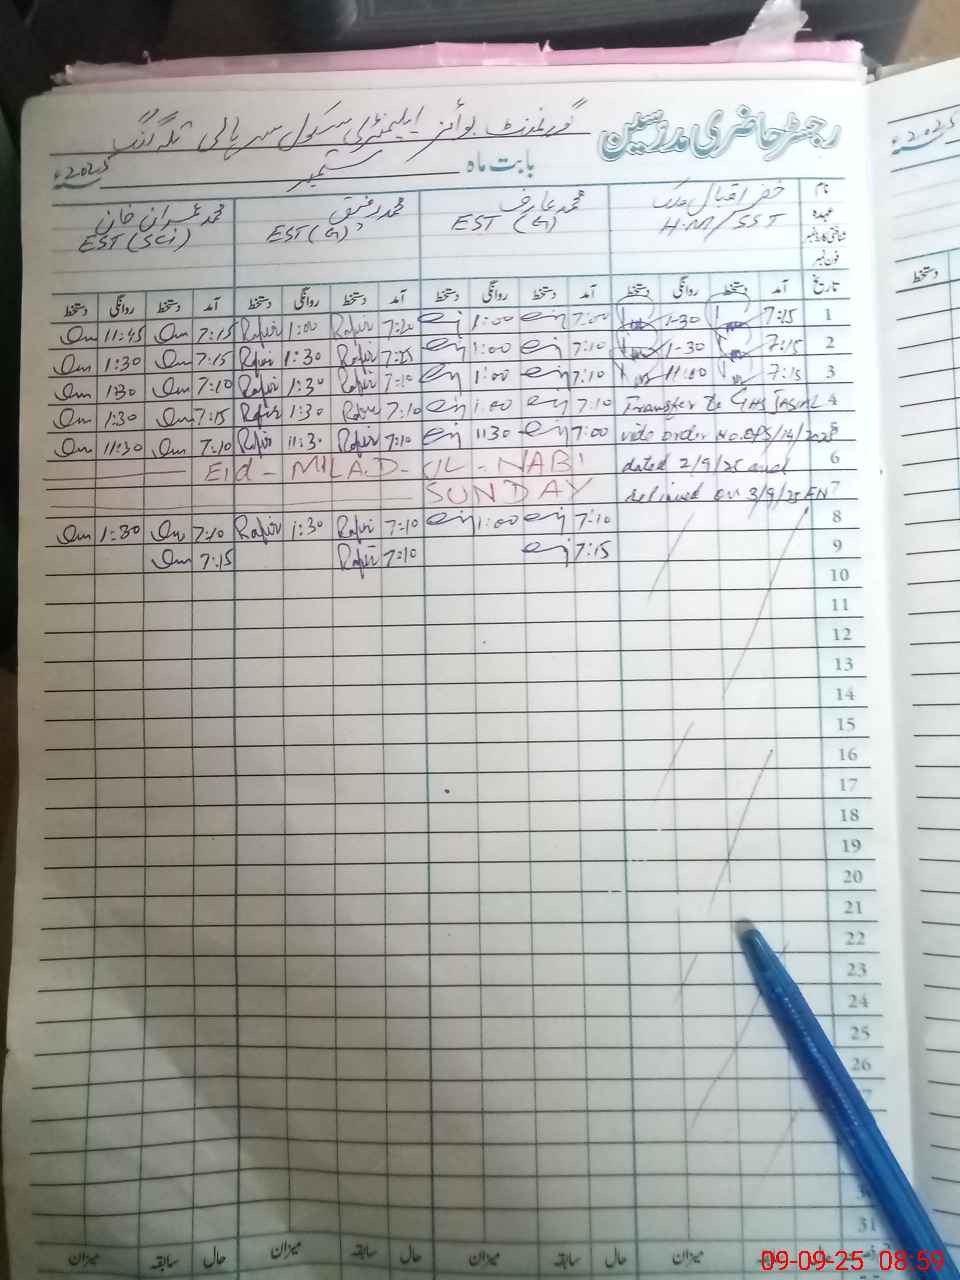 رجسٹر حاضری مدرسین گورنمنٹ بوائز ایلیمنٹری سکول سرہالی تلہ گنگ
بابت ماہ ستمبر 2025ء
نام خضر اقبال ملک محمد عارف محمد رفیق محمد عمران خان
عہدہ H.M/SST EST (G) EST (G) EST (Sci)
شناختی کارڈ نمبر
فون نمبر
تاریخ آمد دستخط روانگی دستخط آمد دستخط روانگی دستخط آمد دستخط روانگی دستخط آمد دستخط روانگی دستخط
1 7:15 1-30 7:00 1:00 7:20 Rafiq 1:00 Rafiq 7:15 11:45
2 7:15 1-30 7:10 1:00 7:15 Rafiq 1:30 Rafiq 7:15 1:30
3 7:15 11:00 7:10 1:00 7:10 Rafiq 1:30 Rafiq 7:10 1:30
4 Transfer to GHS JASIAL 7:10 1:00 7:10 Rafiq 1:30 Rafiq 7:15 1:30
5 vide order No. 2025 7:00 1130 7:10 Rafiq 11:30 Rafiq 7:10 11:30
6 dated 2/9/25 and Eid - MILAD - UL - NABI
7 relieved on 3/9/25 AN SUNDAY
8 7:10 1:00 7:10 Rafiq 1:30 Rafiq 7:10 1:30
9 7:15 7:10 Rafiq 7:15
10
11
12
13
14
15
16
17
18
19
20
21
22
23
24
25
26
31
حال سابقہ میزان حال سابقہ میزان حال سابقہ میزان حال سابقہ میزان
09-09-25 08:59